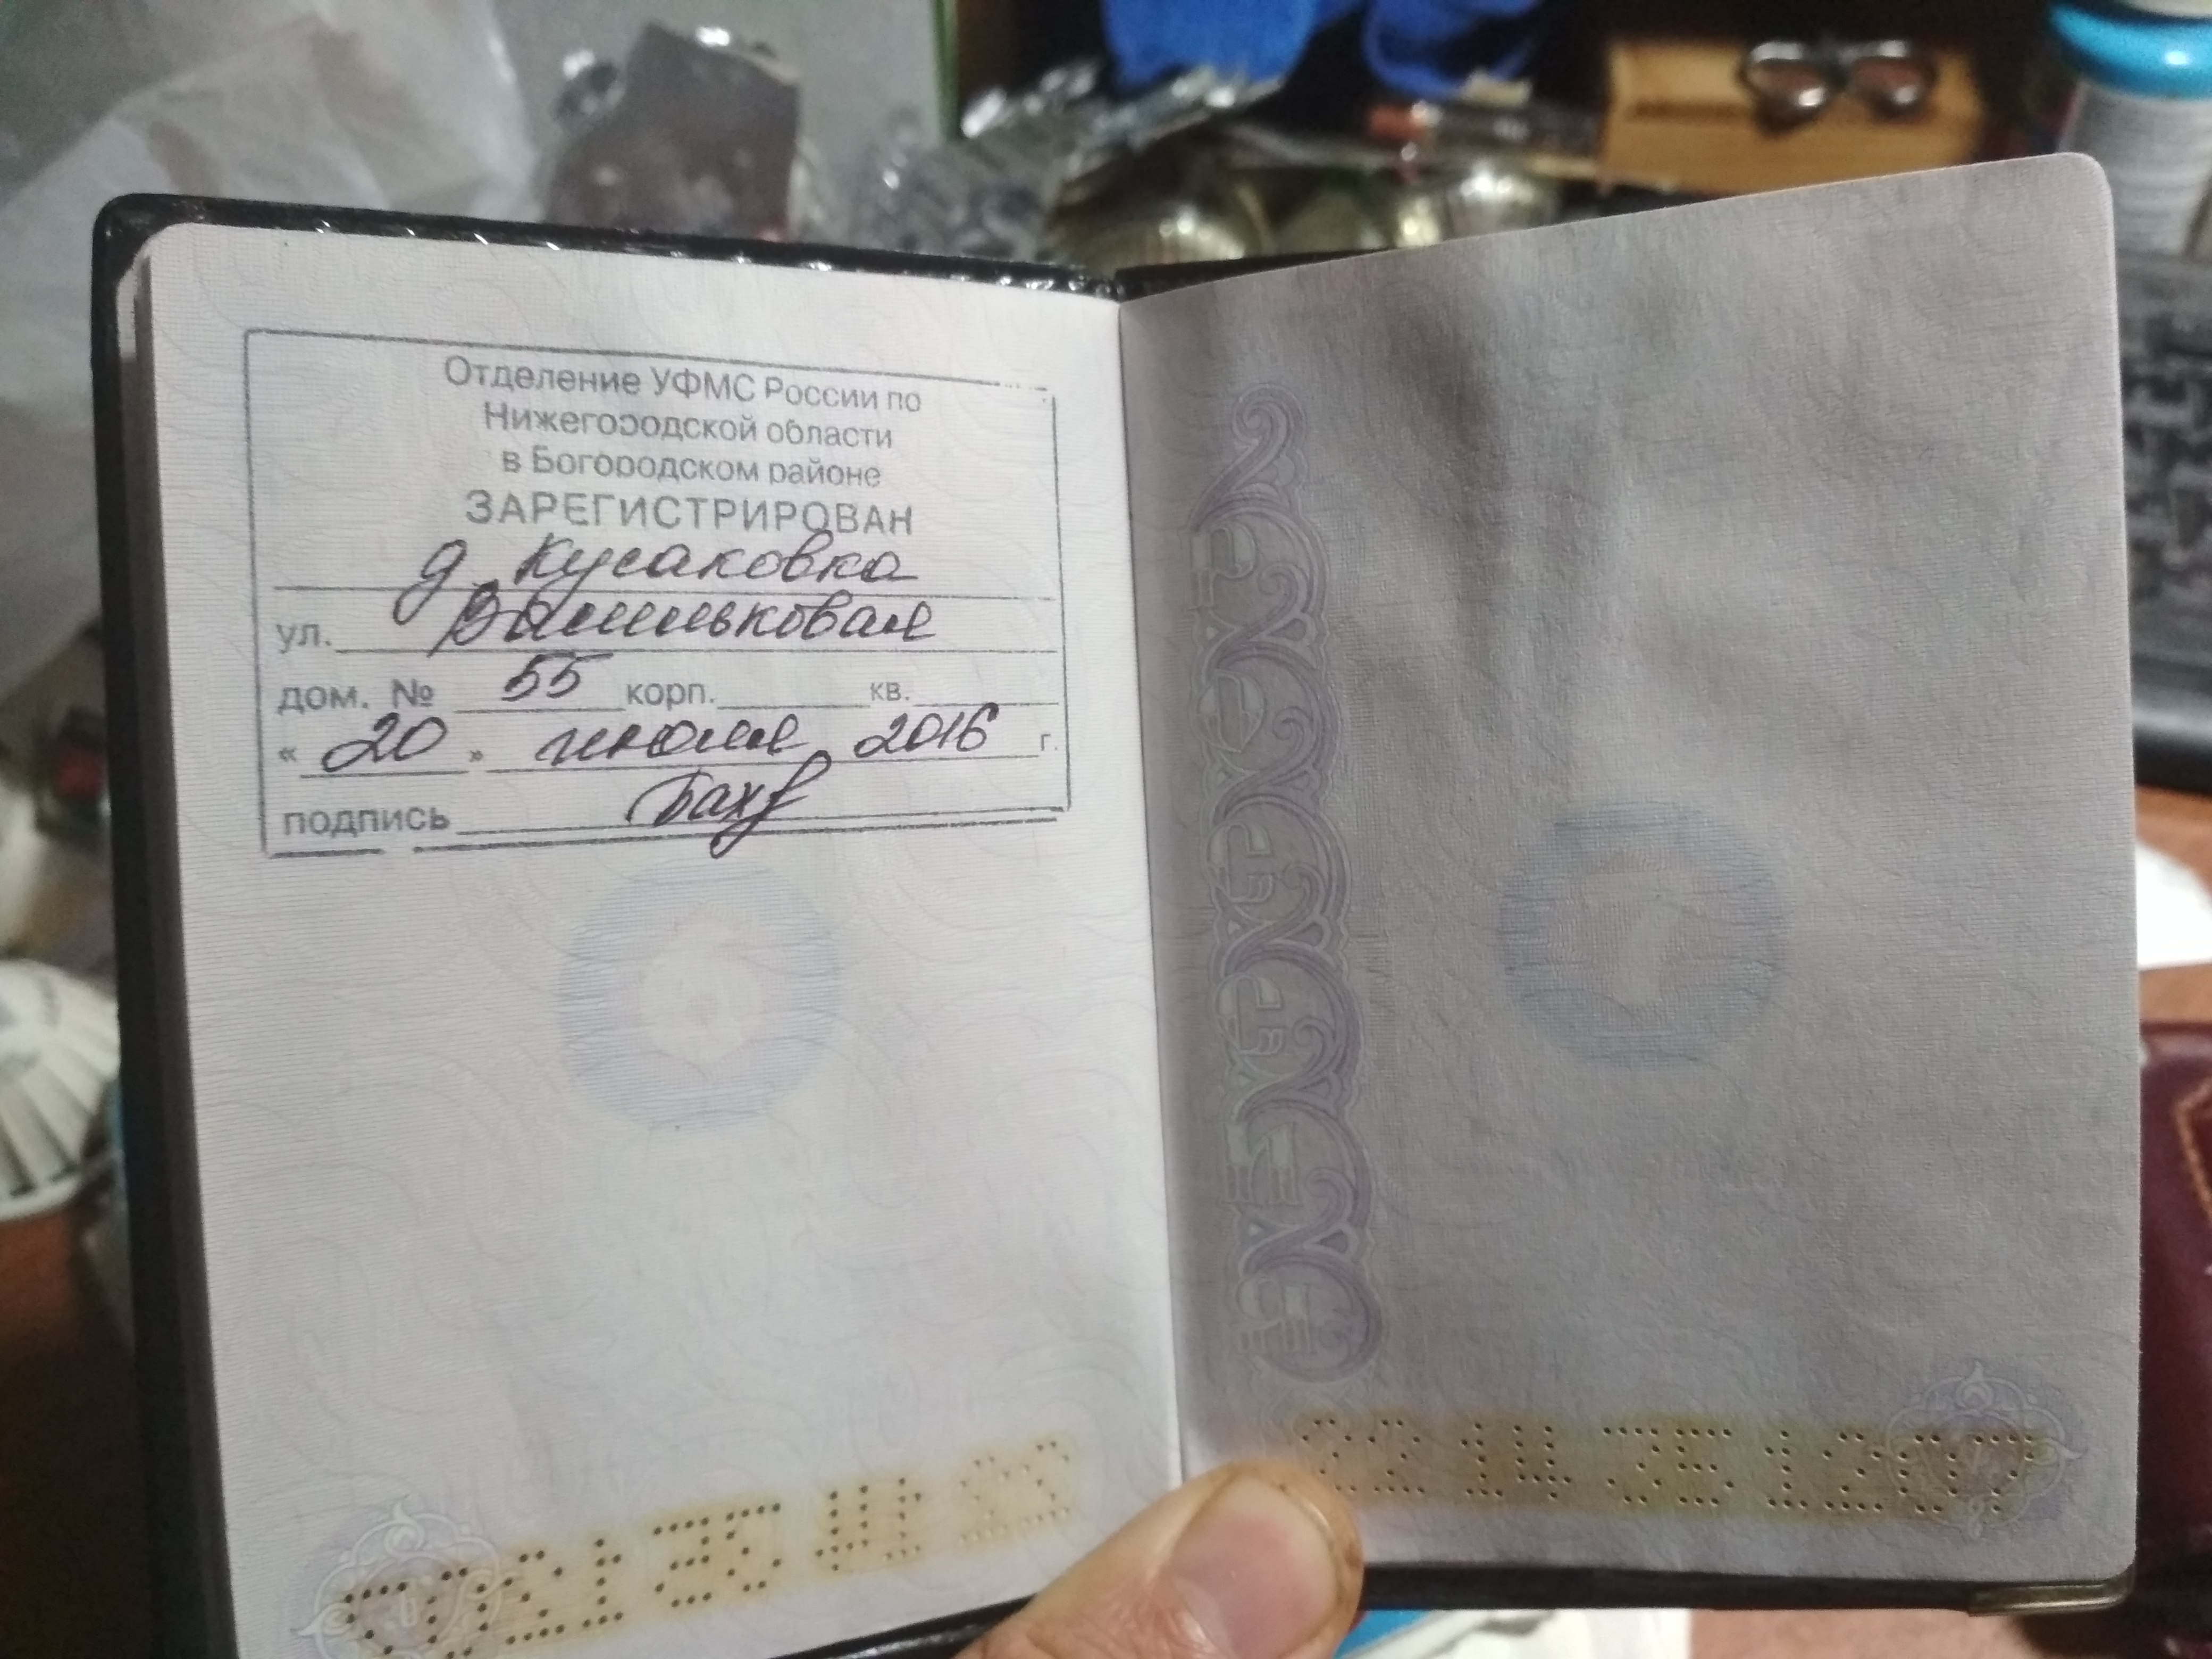 Отделение УФМС России по
Нижегородской области
в Богородском районе
ЗАРЕГИСТРИРОВАН
д. Кусаковка
ул. Васильковая
дом. № 55 корп. кв.
« 20 » июля 2016 г.
подпись
6
7
22 14 351207